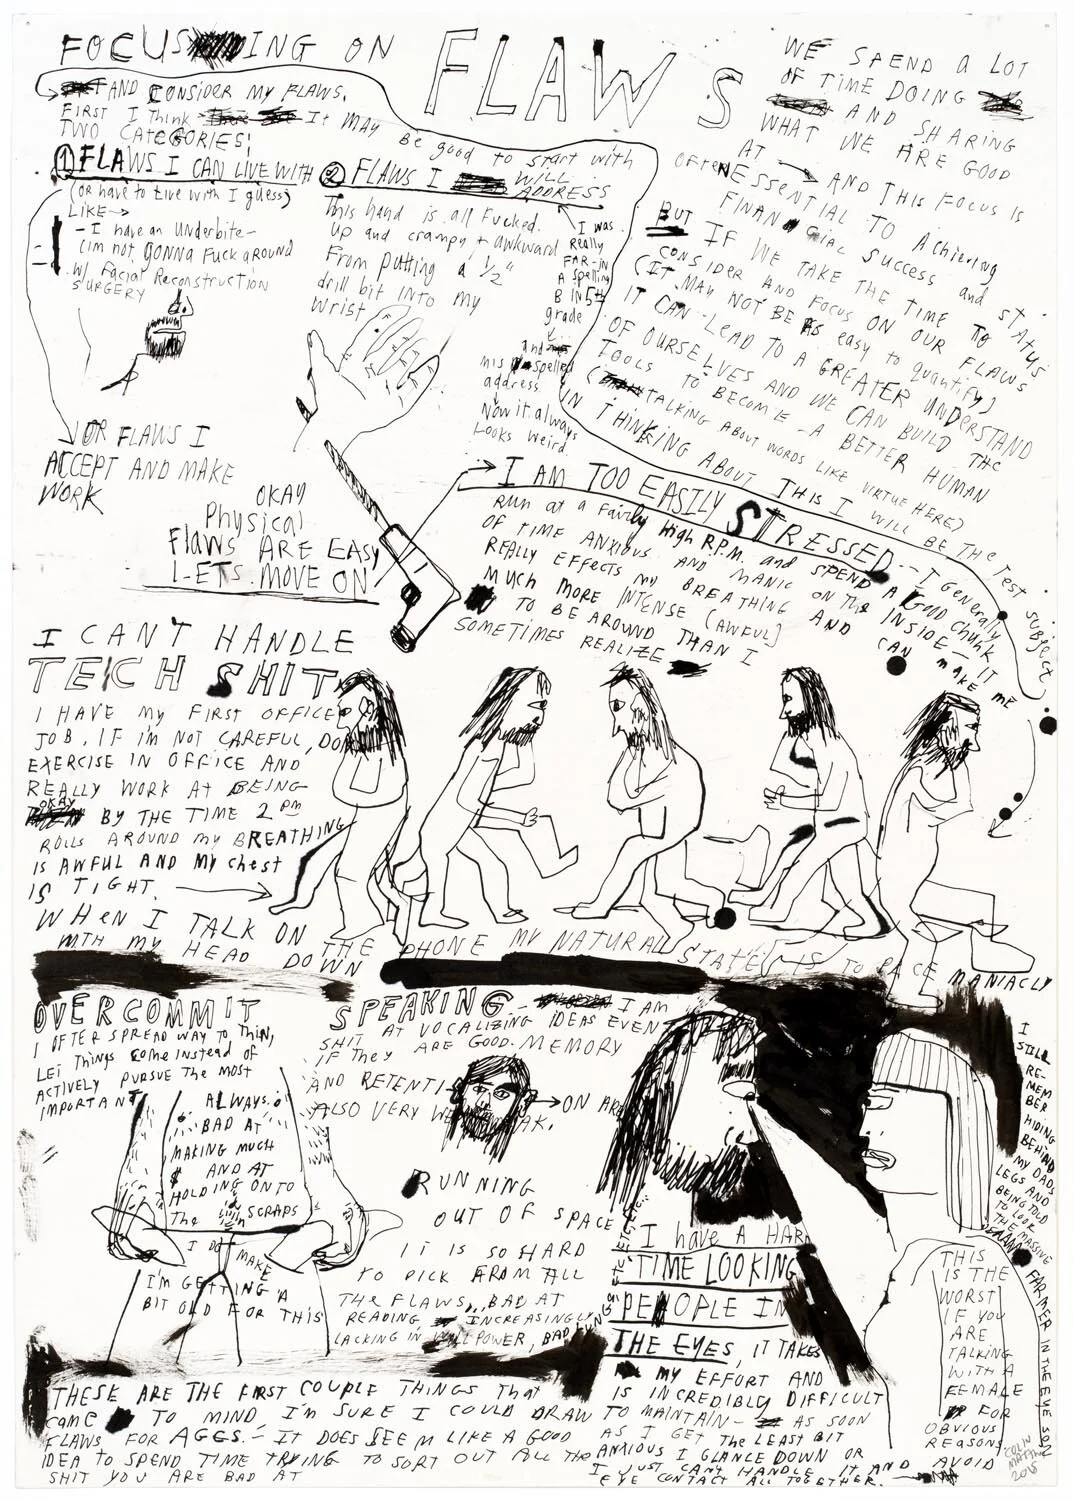 FOCUSING ON FLAWS
AND CONSIDER MY FLAWS.
FIRST I Think It MAY be good to start with
TWO CATEGORIES:
① FLAWS I CAN LIVE WITH
(or have to Live with I guess)
LIKE→
- I have an Underbite -
(im not GONNA FUCK AROUND
w/ Facial Reconstruction
SURGERY
↓ OR FLAWS I
ACCEPT AND MAKE
WORK
② FLAWS I WILL
ADDRESS
This hand is all Fucked.
Up and crampy + awkward
From putting a 1/2"
drill bit INTO my
Wrist
I was
Really
FAR-IN
A spelling
B IN 5th
grade
and
misspelled
address.
Now it always
Looks Weird
WE SPEND a LOT
OF TIME DOING
AND SHARING
WHAT WE ARE GOOD
AT → AND THIS FOCUS IS
OFTEN ESSENTIAL TO Achieving
FINANCIAL SUCCESS and STATUS
BUT IF WE TAKE THE TIME TO
CONSIDER AND FOCUS ON OUR FLAWS
(IT MAY NOT BE AS easy to quantify)
IT CAN LEAD TO A GREATER UNDERSTAND
OF OURSELVES AND WE CAN BUILD THE
TOOLS TO BECOME A BETTER HUMAN
(TALKING ABOUT WORDS LIKE VIRTUE HERE)
IN THINKING ABOUT THIS I WILL BE The Test Subject
OKAY
Physical
Flaws ARE EASY
LETS MOVE ON
I AM TOO EASILY STRESSED -- I Generally
RUN at a Fairly High R.P.M. and SPEND A Good Chunk
OF TIME ANXIOUS AND MANIC ON THE INSIDE - IT
REALLY EFFECTS my BREATHING AND CAN MAKE ME
MUCH MORE INTENSE (AWFUL)
TO BE AROUND THAN I
SOMETIMES REALIZE
I CAN'T HANDLE
TECH SHIT
I HAVE my FIRST OFFICE
JOB. IF I'M NOT CAREFUL, DO
EXERCISE IN OFFICE AND
REALLY WORK AT BEING
OKAY BY THE TIME 2 PM
ROLLS AROUND my BREATHING
IS AWFUL AND MY chest
IS TIGHT.
WHEN I TALK ON THE PHONE MY NATURAL STATE IS TO PACE MANIACLY
WITH MY HEAD DOWN
OVERCOMMIT
I OFTER SPREAD WAY TO THIN,
LET Things come instead of
ACTIVELY PURSUE The MOST
IMPORTANT
ALWAYS
BAD AT
MAKING MUCH
$ AND AT
HOLDING ONTO
The SCRAPS
I DO MAKE
I'M GETTING A
BIT OLD FOR THIS
SPEAKING - I AM
SHIT AT VOCALIZING IDEAS EVEN
IF They ARE GOOD. MEMORY
AND RETENTI → ON ARE
ALSO VERY WEAK.
RUNNING
OUT OF SPACE
IT IS SO HARD
TO PICK FROM ALL
THE FLAWS, BAD AT
READING, INCREASINGLY
LACKING IN WILLPOWER, BAD
ETC, ETC,
I have A HAR
TIME LOOKING
PEOPLE IN
THE EYES, IT TAKES
MY EFFORT AND
IS INCREDIBLY DIFFICULT
TO MAINTAIN - AS SOON
AS I GET The LEAST BIT
ANXIOUS I GLANCE DOWN OR
I JUST CAN'T HANDLE IT AND AVOID
EYE CONTACT ALL TOGETHER.
I
STILL
RE-
MEM
BER
HIDING
BEHIND
MY DADS
LEGS AND
BEING TOLD
TO LOOK
THE MASSIVE
FARMER IN THE EYE SON
THIS
IS THE
WORST
IF YOU
ARE
TALKING
WITH A
FEMALE
FOR
OBVIOUS
REASONS.
THESE ARE THE FIRST COUPLE THINGS that
came TO MIND, I'M SURE I COULD DRAW
FLAWS FOR AGES. - IT DOES SEEM LIKE A GOOD
IDEA TO SPEND TIME TRYING TO SORT OUT ALL the
SHIT YOU ARE BAD AT
COLIN
2015